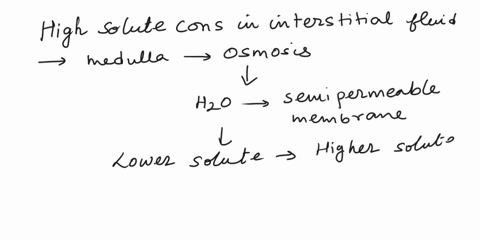 High solute cons in interstitial fluid
→ medulla → osmosis
↓
H2O → semipermeable
membrane
↓
Lower solute → Higher solute